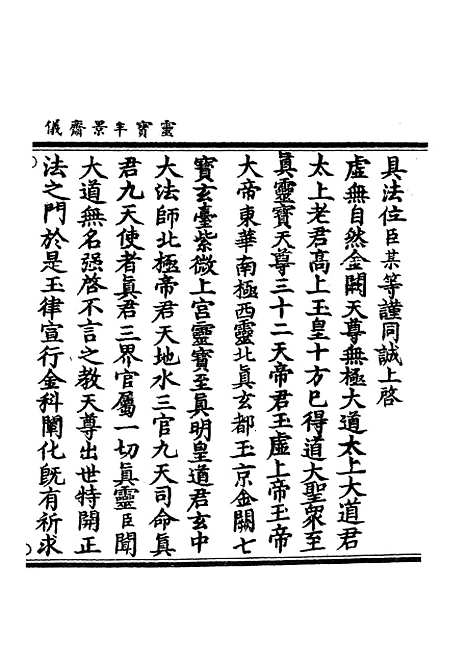 靈寳半景齋儀
具法位臣某等謹同誠上啓
虛無自然金闕天尊無極大道太上大道君
太上老君髙上玉皇十方已得道大聖衆至
眞靈寳天尊三十二天帝君玉虛上帝玉帝
大帝東華南極西靈北眞玄都玉京金闕七
寳玄臺紫微上宮靈寳至眞明皇道君玄中
大法師北極帝君天地水三官九天司命眞
君九天使者眞君三界官屬一切眞靈臣聞
大道無名强啓不言之教天尊出世特開正
法之門於是玉律宣行金科闡化旣有祈求